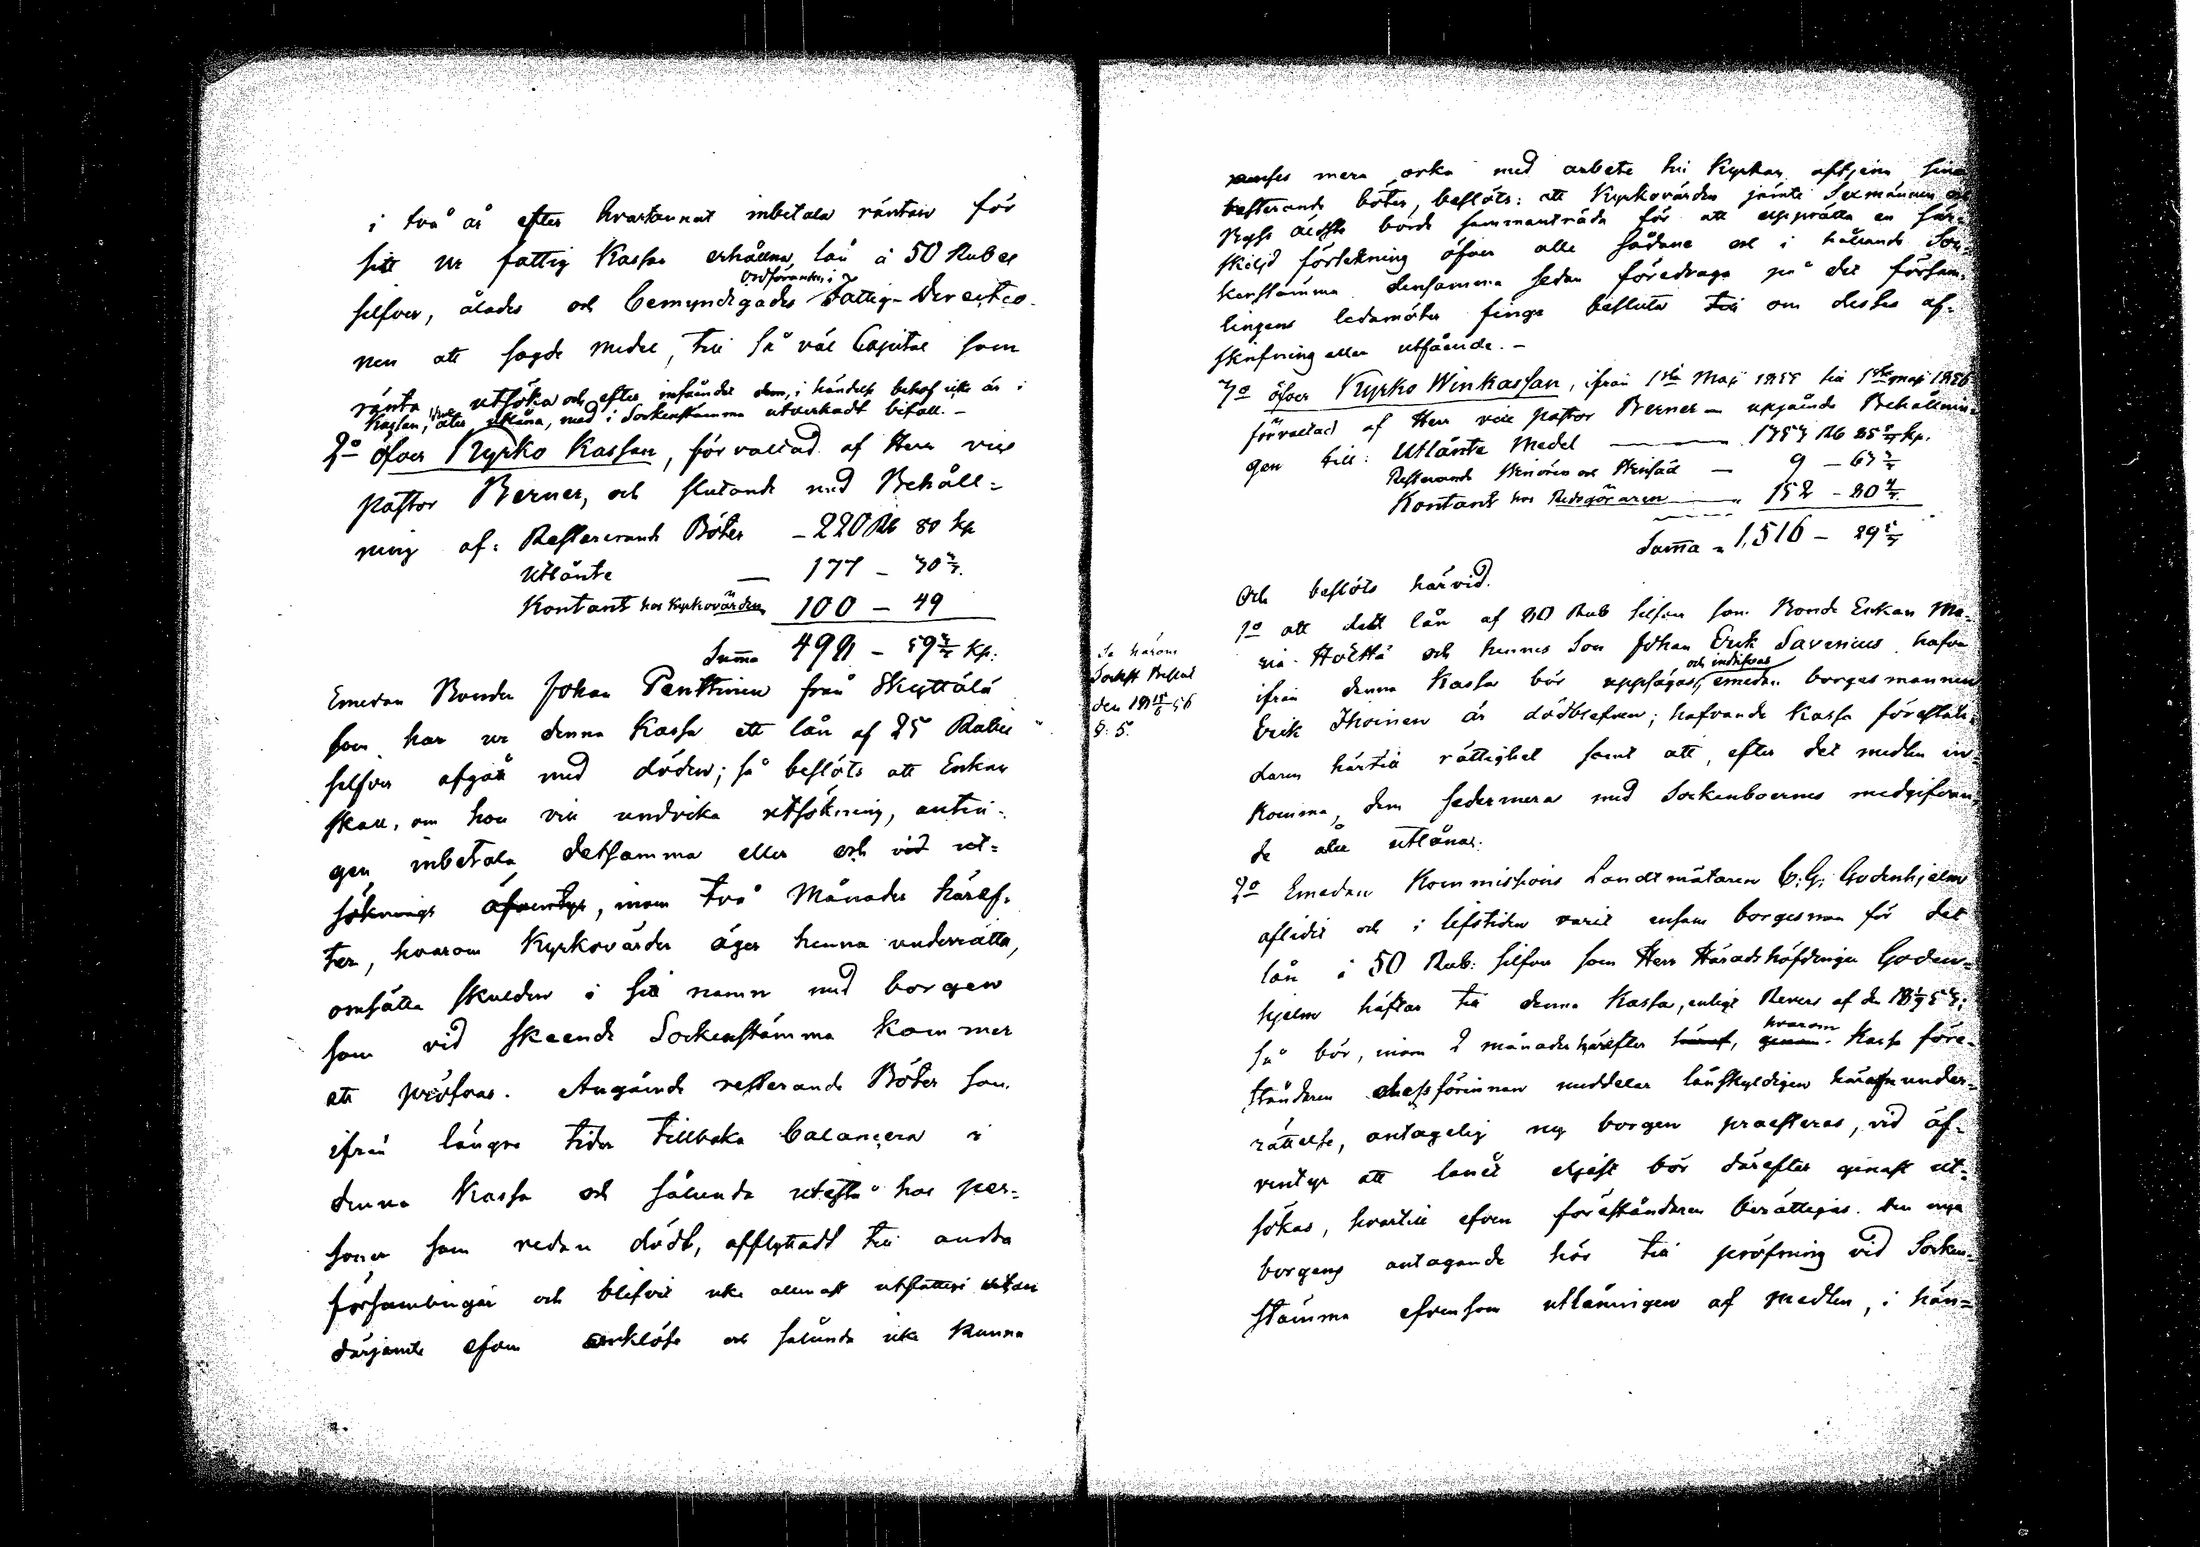 i två år efter hvartannat inbetala räntan för
sitt ur fattig Kassan erhållna lån à 50 Rubel
ordföranden i
silfver, ålades och bemyndigades Fattig-Directio-
nen att sagde medel, till så väl Capital som
ränta utsöka och efter infåendet dem, i händelse behof icke är i
Kassan, åter utlåna, med i Sockenstämma utverkadt bifall. -
2o öfver Kyrko Kassan, förvaltad af Herr vice
pastor Berner, och slutande med Behåll-
ning af: Resterande Böter - 220 Rb 80 kp
Utlånte - 177 - 30
Kontant hos Kyrkovärden 100 - 49
Summa 498 - 59 Kp:
Emedan Bonden Johan Penttinen från Skyttälä
som har ur denna Kassa ett lån af 25 Rubel
silfver afgått med döden; så beslöts att Enkan
skall, om hon vill undvika utsökning, antin-
gen inbetala detsamma eller och vid ut-
söknings äfventyr, inom två Månader häref-
ter, hvarom Kyrkovärden äger henne underrätta,
omsätta skulden i sitt namn med borgen
som vid skeende Sockenstämma kommer
att pröfvas. Angående resterande Böter som
ifrån längre tider tillbaka balancera i
denna Kassa och sålunda utestå hos per-
soner som redan dödt, afflyttadt till andra
församlingar och blifvit icke allenast utfattiga utan
därjemte efven orklösa och sålunda icke kunna
mera orka med arbete till Kyrkan aftjena sina
resterande böter, beslöts: att Kyrkovärden jämte Sexmännen och
Byss äldste borde sammanträda för att upprätta en sär-
skild förtekning öfver alla sådane och i hållande Soc-
kenstämma densamma sedan föredraga på det försam-
lingens ledamöter finge besluta om dessas af-
skrifning eller utfående. -
3o öfver Kyrko Winkassan, ifrån 1sta Maji 1855 till 1sta maj 1856
förvaltad af Herr vice pastor Berner - uppgående Behållnin-
gen till: Utlånte Medel
Kontant hos Redogöraren 152 - 80
Summa 1,516 - 29
Och beslöts härvid.
1o att det lån af 20 Rub silfver som Bonde Enkan Ma-
ria Hoitta och hennes Son Johan Erik Savenius hafva
och indrifvas
ifrån denna Kassa bör uppsägas, emedan borgesmannen
Erik Ihoinen är dödblefven; hafvande Kassa förestån-
daren härtill rättighet samt att, efter det medlen in-
komma, dem sedermera med Sockenboernes medgifvan-
de åter utlånas.
Se härom
Sockst Beslut
§. 5.
2o Emedan Kommissions Landtmätaren C. G. Godenhjelm
aflidit och i lifstiden varit ensam borgesman för det
lån à 50 Rub: silfver som Herr Häradshöfdingen Goden-
hjelm häftar till denna Kassa, enligt Revers af den
hvarom
så bör, inom 2 månader härefter häraf, genom Kassa före-
ståndaren dessförinnan meddelar lånskyldigen häraf under-
rättelse, antagelig ny borgen praesteras, vid äf-
ventyr att lånet eljest bör därefter genast ut-
sökas, hvartill efven föreståndaren berättigas. Den nya
borgens antagande hör till pröfning vid Socken-
stämma efvensom utlåningen af medlen, i hän-